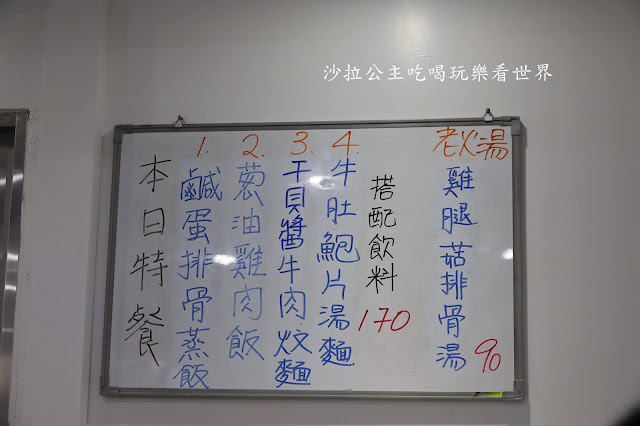 沙拉公主吃喝玩樂看世界
本日特餐
1. 鹹蛋排骨蒸飯
2. 蔥油雞肉飯
3. 干貝醬牛肉炆麵
4. 牛肚鮑片湯麵
搭配飲料 170
老火湯
雞腿菇排骨湯 90